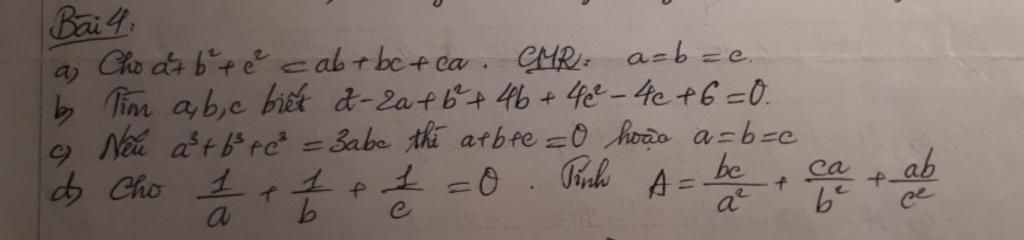 Bài 4:
a) Cho a²+b²+c² = ab+bc+ca. CMR: a=b=c.
b) Tìm a,b,c biết a²-2a+b²+4b+4c²-4c+6=0.
c) Nếu a³+b³+c³=3abc thì a+b+c=0 hoặc a=b=c
d) Cho 1/a + 1/b + 1/c = 0. Tính A = bc/a² + ca/b² + ab/c²